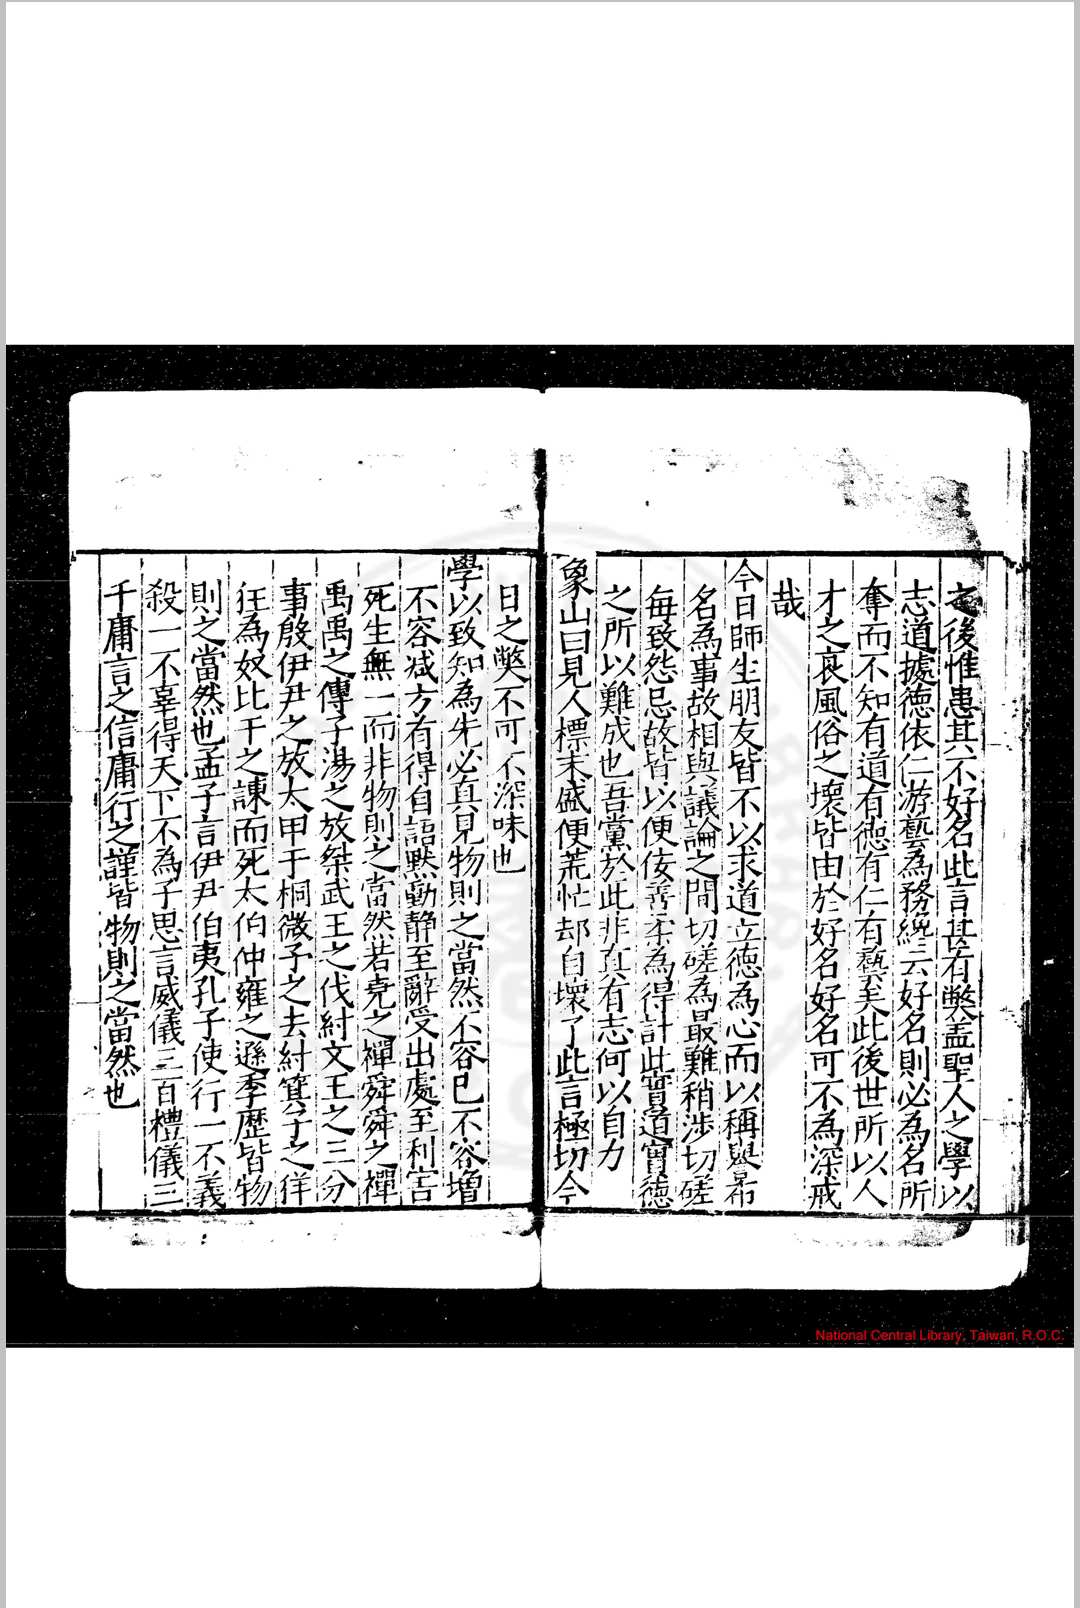 之後惟患其不好名此言甚有弊盖聖人之學以
志道據德依仁游藝為務纔云好名則必為名所
奪而不知有道有德有仁有藝矣此後世所以人
才之衰風俗之壞皆由於好名好名可不為深戒
哉
今日師生朋友皆不以求道立德為心而以稱與希
名為事故相與議論之間切磋為最難稍涉切磋
每致怨忌故皆以便佞善柔為得計此實道實德
之所以難成也吾黨於此非真有志何以自力
象山曰見人標末盛便荒忙却自壞了此言極切今
日之弊不可不深味也
學以致知為先必真見物則之當然不容已不容增
不容减方有得自語默動靜至辭受出處至利害
死生無一而非物則之當然若堯之禪舜舜之禪
禹禹之傳子湯之放桀武王之伐紂文王之三分
事殷伊尹之放太甲于桐微子之去紂箕子之佯
狂為奴比干之諫而死太伯仲雍之遜季歷皆物
則之當然也孟子言伊尹伯夷孔子使行一不義
殺一不辜得天下不為子思言威儀三百禮儀三
千庸言之信庸行之謹皆物則之當然也
National Central Library, Taiwan, R.O.C.